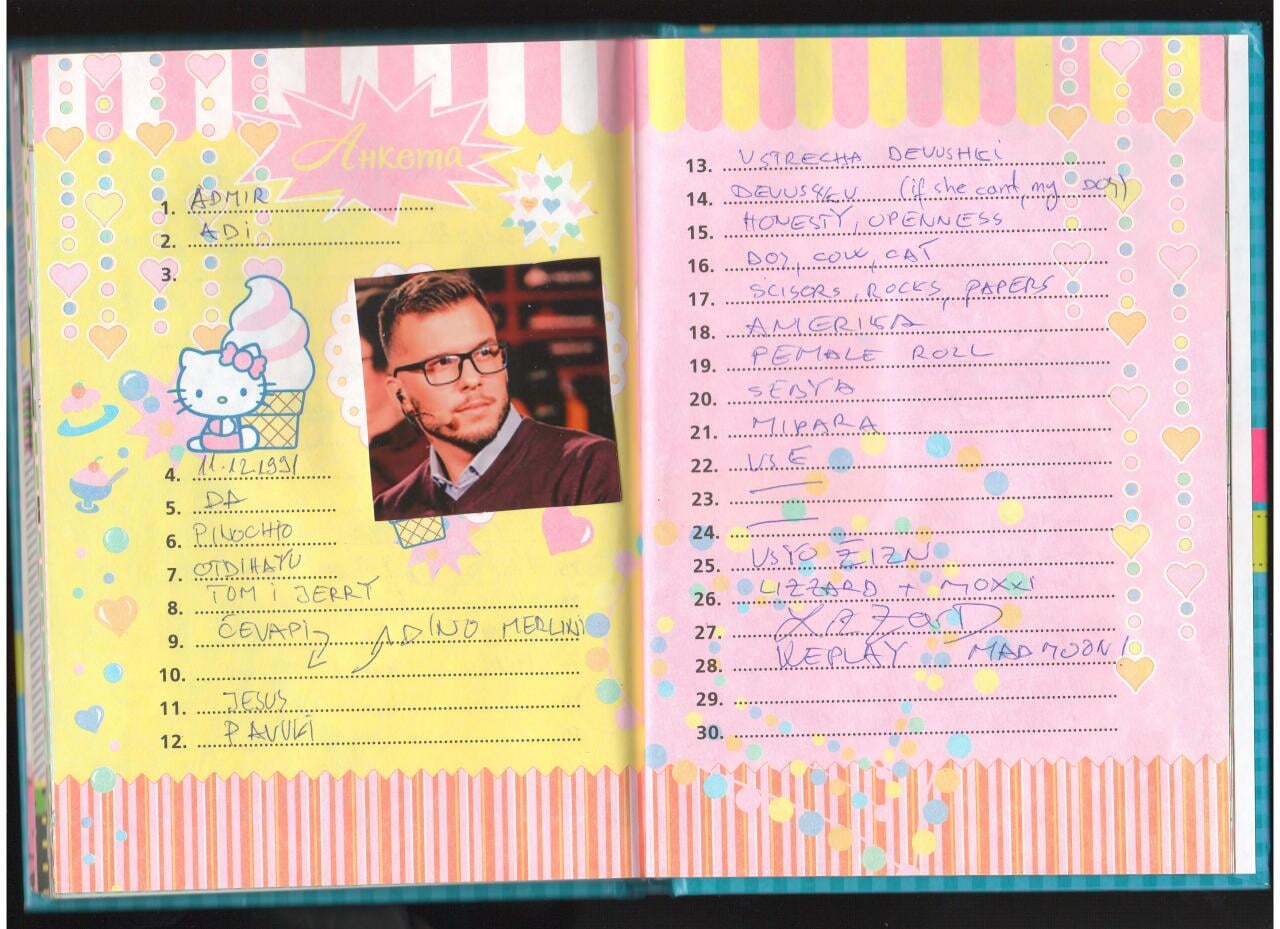 Анкета
1. ADMIR
2. ADI
3.
4. 11.12.1991
5. DA
6. PINOCHIO
7. OTDIHAYU
8. TOM I JERRY
9. ČEVAPI DINO MERLIN
10.
11. JESUS
12. PAVUKI
13. VSTRECHA DEVUSHKI
14. DEVUSHKU (if she cant, my DOG)
15. HONESTY, OPENNESS
16. DOG, COW, CAT
17. SCISORS, ROCKS, PAPERS
18. AMERIKA
19. FEMALE ROLL
20. SEBYA
21. MIPARA
22. VSE
23. —
24. —
25. VSYO ŽIZN
26. LIZZARD + MOXXI
27.
28. REPLAY MADMOON!
29.
30.